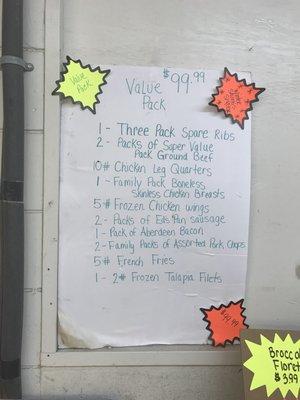 Value
Pack
$99.99
Value
Pack
1 - Three Pack Spare Ribs
2 - Packs of Super Value
Pack Ground Beef
10# Chicken Leg Quarters
1 - Family Pack Boneless
Skinless Chicken Breasts
5# Frozen Chicken wings
2 - Packs of Eds Pan sausage
1 - Pack of Aberdeen Bacon
2 - Family Packs of Assorted Pork Chops
5# French Fries
1 - 2# Frozen Talapia Filets
$99.99
Broccoli
Floret
$3.99